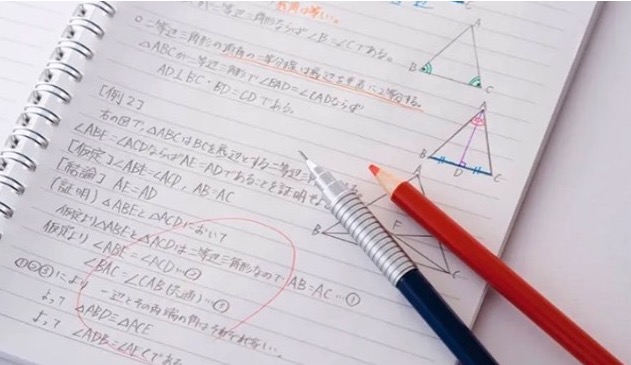 底角は等しい。
二等辺三角形ならば∠B=∠Cである。
A
B
C
○二等辺三角形の頂角の二等分線は底辺を垂直に2等分する。
△ABCが二等辺三角形で∠BAD=∠CADならば
AD⊥BC・BD=CDである。
A
B
D
C
[例2]
右の図で,△ABCはBCを底辺とする二等辺三
∠ABE=∠ACDならばAE=ADであることを証明
[仮定]∠ABE=∠ACD, AB=AC
[結論] AE=AD
(証明) △ABEと△ACDにおいて
仮定より△ABEと△ACDは二等辺三角形なので AB=AC…①
仮定より ∠ABE=∠ACD…②
∠BAC=∠CAB(共通)…③
①②③により 一辺とその両端の角はそれぞれ等しい。
よって △ABD≡△ACE
よって ∠ADB=∠AECである
B
F
C